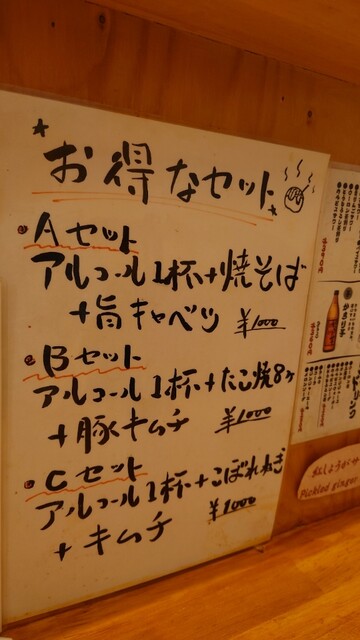 お得なセット
Aセット
アルコール1杯+焼そば
+旨キャベツ ¥1000
Bセット
アルコール1杯+たこ焼8ヶ
+豚キムチ ¥1000
Cセット
アルコール1杯+こぼれねぎ
+キムチ ¥1000
紅しょうが
Pickled ginger